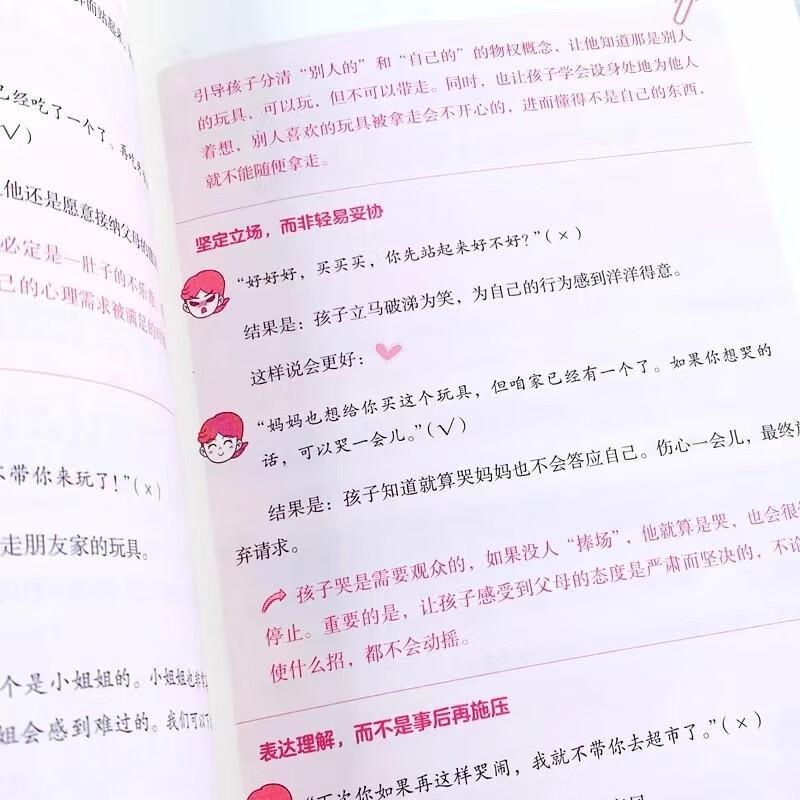 已经吃了一个了。再吃
√）
他还是愿意接纳父母的
必定是一肚子的不乐
己的心理需求被满足的
不带你来玩了！”（×）
走朋友家的玩具。
个是小姐姐的。小姐姐也
姐会感到难过的。我们可以
引导孩子分清“别人的”和“自己的”的物权概念，让他知道那是别人
的玩具，可以玩，但不可以带走。同时，也让孩子学会设身处地为他人
着想，别人喜欢的玩具被拿走会不开心的，进而懂得不是自己的东西，
就不能随便拿走。
坚定立场，而非轻易妥协
“好好好，买买买，你先站起来好不好？”（×）
结果是：孩子立马破涕为笑，为自己的行为感到洋洋得意。
这样说会更好：
“妈妈也想给你买这个玩具，但咱家已经有一个了。如果你想哭的
话，可以哭一会儿。”（√）
结果是：孩子知道就算哭妈妈也不会答应自己。伤心一会儿，最终
弃请求。
孩子哭是需要观众的，如果没人“捧场”，他就算是哭，也会很
停止。重要的是，让孩子感受到父母的态度是严肃而坚决的，不论
使什么招，都不会动摇。
表达理解，而不是事后再施压
“下次你如果再这样哭闹，我就不带你去超市了。”（×）